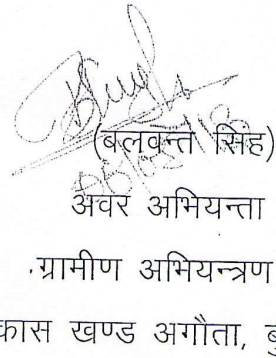 (बलवन्त सिंह)
अवर अभियन्ता
ग्रामीण अभियन्त्रण
कास खण्ड अगौता, बु